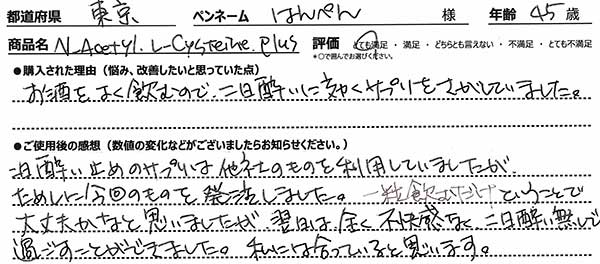 都道府県 東京 ペンネーム はんぺん 様 年齢 45 歳
商品名 N-Acetyl-L-Cysteine Plus 評価 とても満足・満足・どちらとも言えない・不満足・とても不満足
*○で囲んでお選びください。
●購入された理由（悩み、改善したいと思っていた点）
お酒をよく飲むので、二日酔いに効くサプリをさがしていました。
●ご使用後の感想（数値の変化などがございましたらお知らせください。）
二日酔い止めのサプリは他社のものを利用していましたが、
ためしに今回のものを発注しました。一粒飲むだけということで
大丈夫かなと思いましたが翌日は全く不快感なく、二日酔い無しで
過ごすことができました。私には合っていると思います。